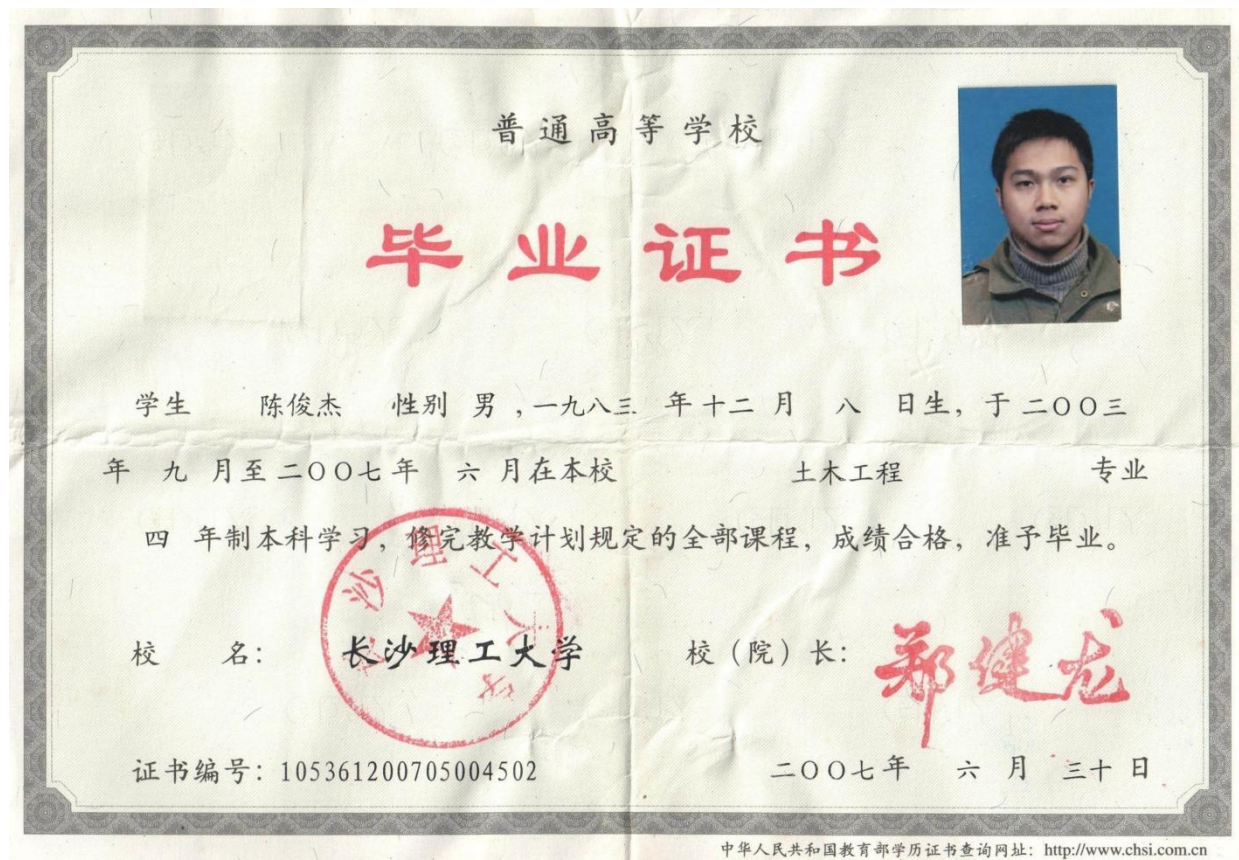 普通高等学校
毕业证书
学生 陈俊杰 性别 男 ,一九八三 年十二 月 八 日生, 于二〇〇三
年 九 月至二〇〇七年 六 月在本校 土木工程 专业
四 年制本科学习, 修完教学计划规定的全部课程, 成绩合格, 准予毕业。
长沙理工大学
校 名: 长沙理工大学 校 (院) 长: 郑健龙
证书编号: 105361200705004502 二〇〇七年 六 月 三十 日
中华人民共和国教育部学历证书查询网址: http://www.chsi.com.cn